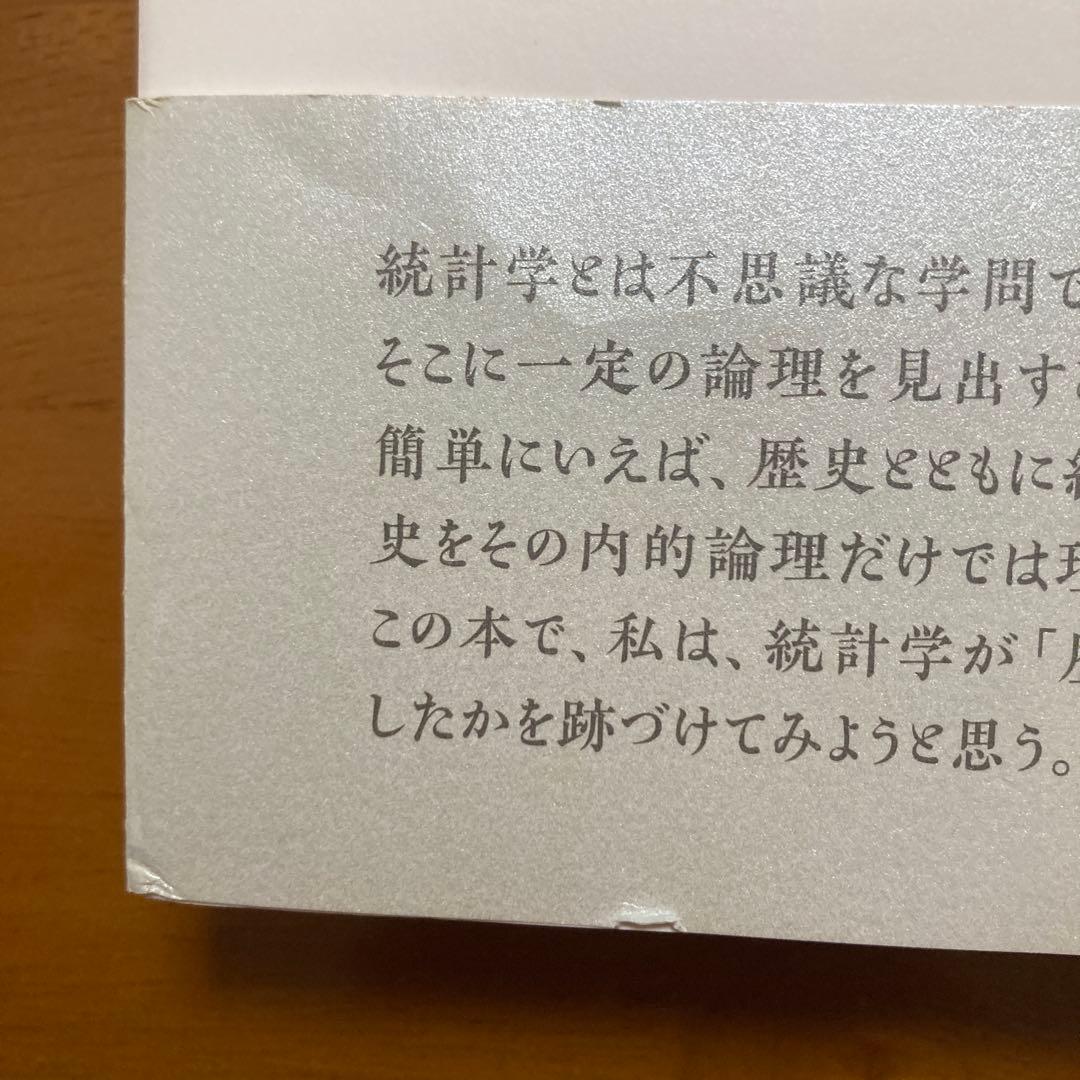 統計学とは不思議な学問で
そこに一定の論理を見出す
簡単にいえば、歴史とともに
史をその内的論理だけでは
この本で、私は、統計学が「
したかを跡づけてみようと思う。